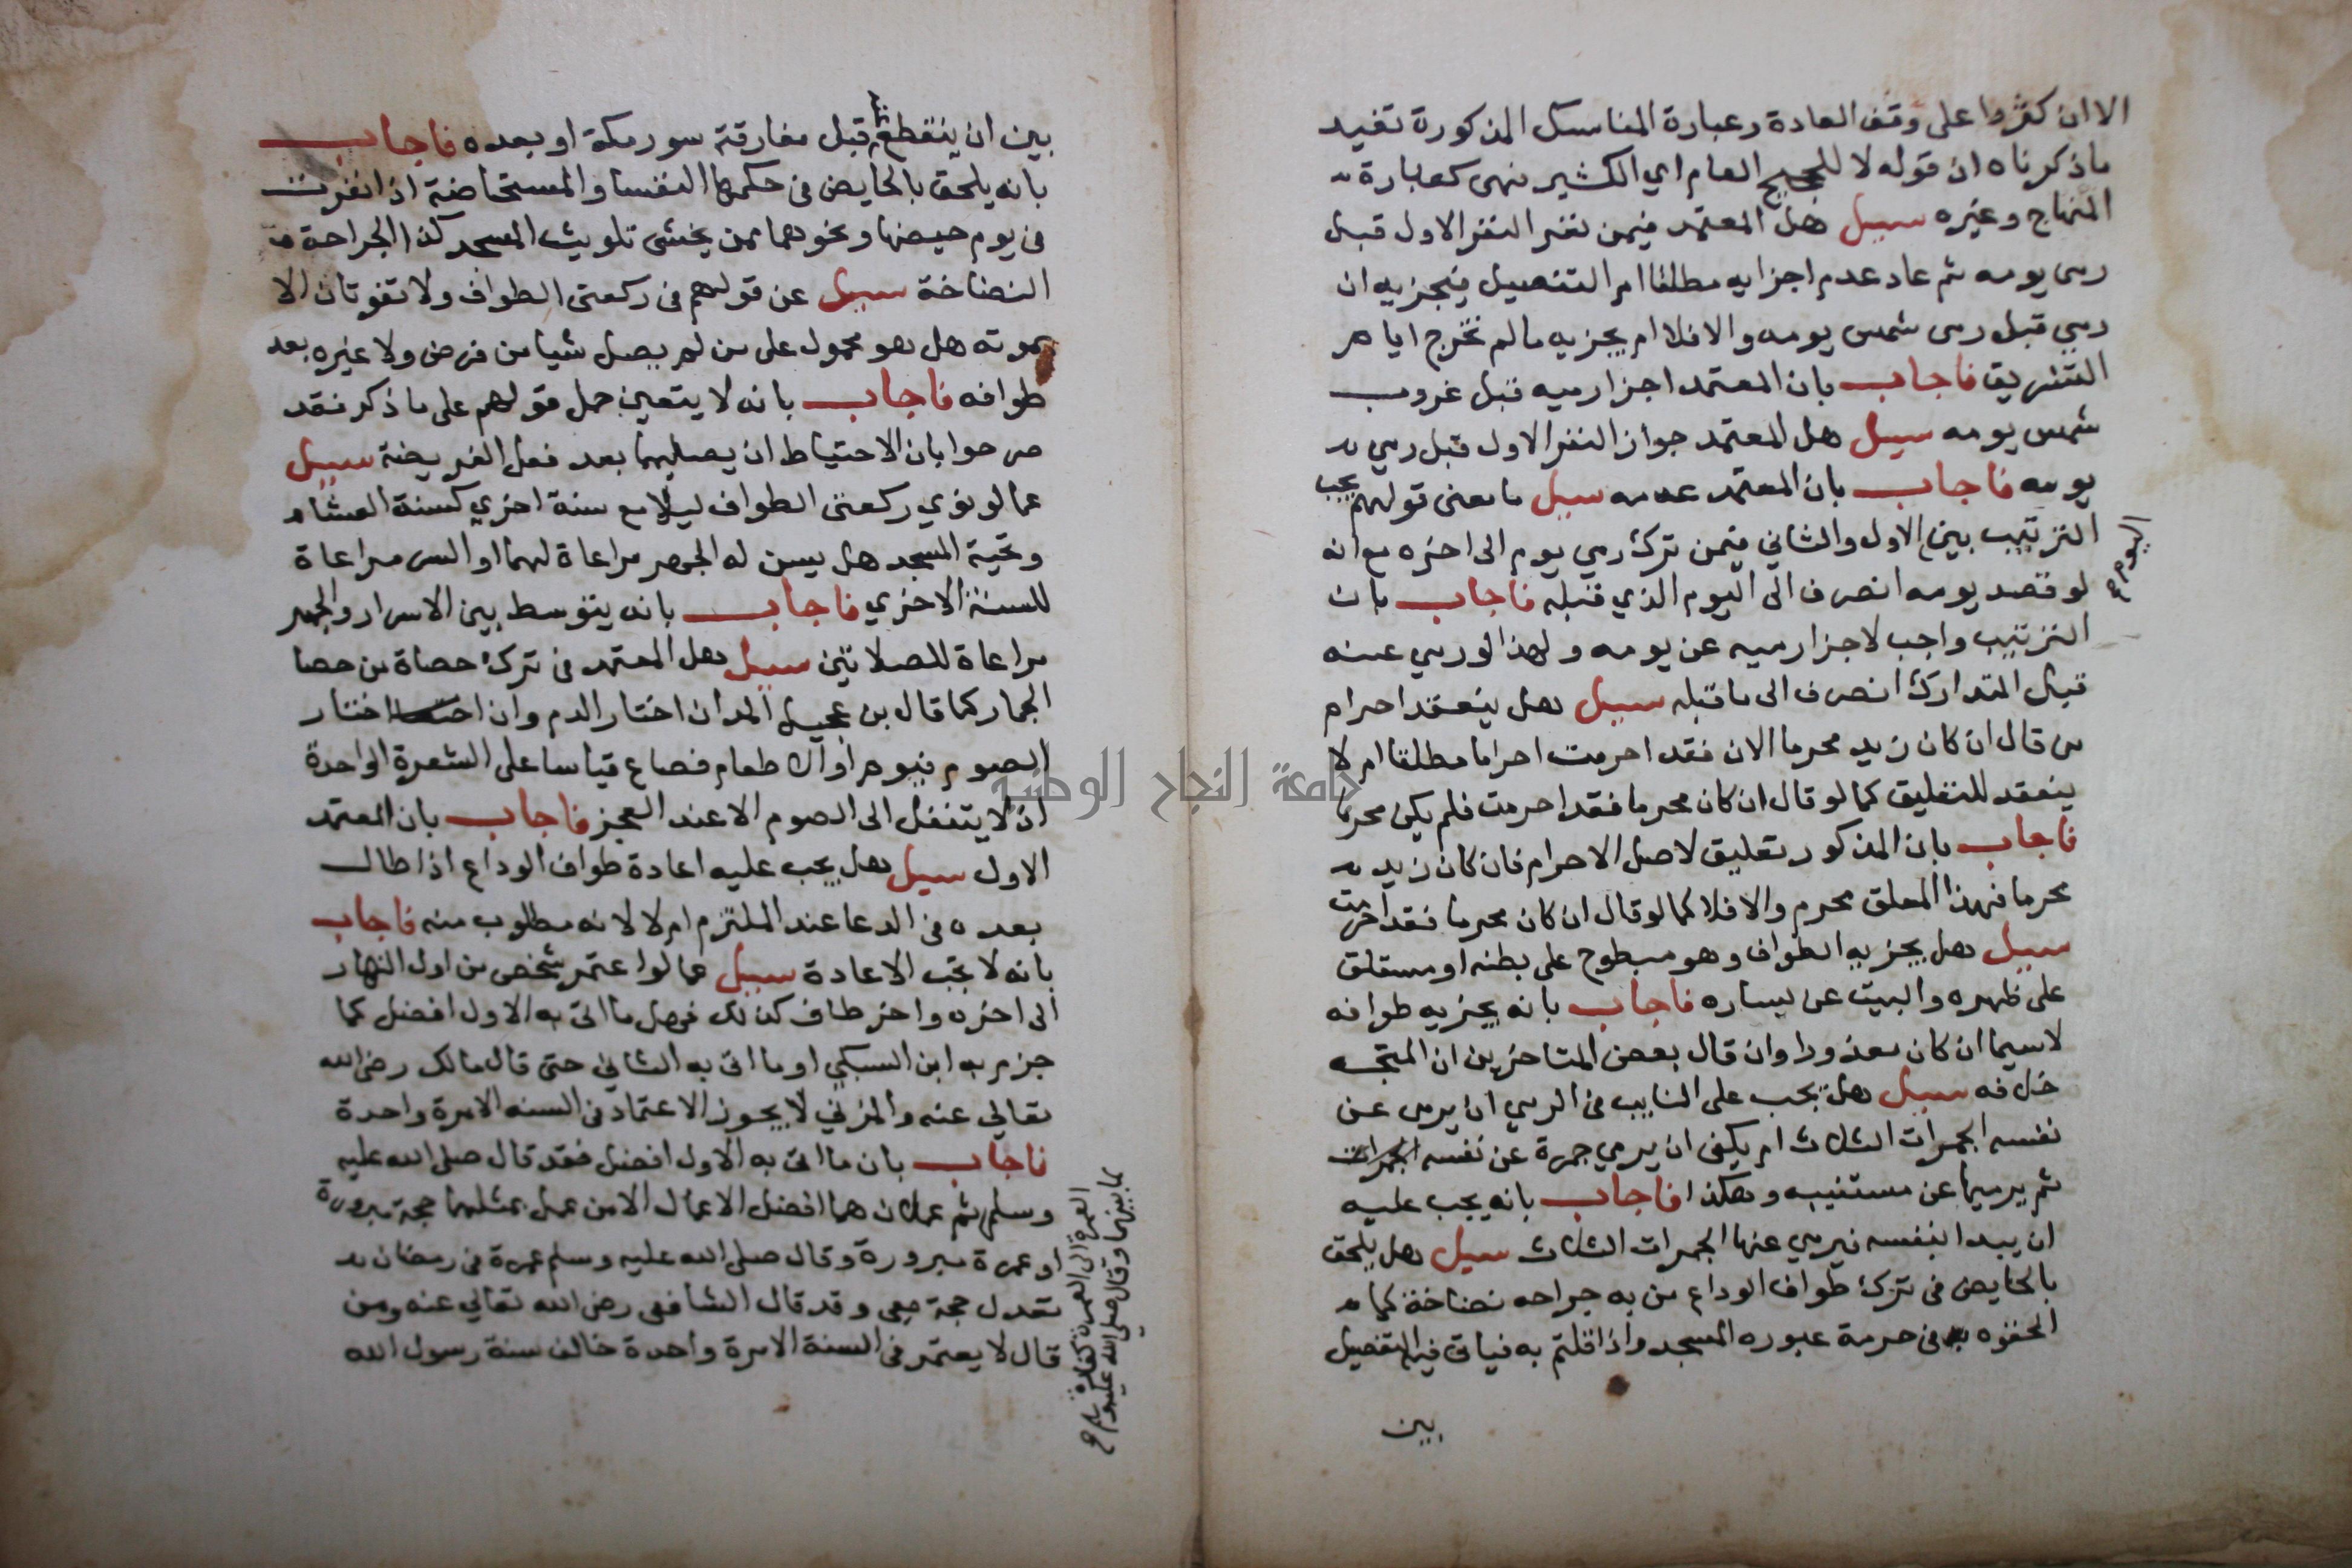 الا ان كثروا على وقف العادة وعبارة المناسك المذكورة تفيد
ما ذكرناه ان قوله لا للحجيج العام اي الكثير فهى كعبارة
المنهاج وغيره سيل هل المعتمد فيمن نفر النفر الاول قبل
رمى يومه ثم عاد عدم اجزايه مطلقا ام التفصيل فيجزيه ان
رمي قبل رمى شمس يومه والا فلا ام يجزيه ما لم تخرج ايام
التشريق فاجاب بان المعتمد اجزا رميه قبل غروب
شمس يومه سيل هل المعتمد جواز النفر الاول قبل رمي
يومه فاجاب بان المعتمد عدمه سيل ما معنى قولهم يجب
الترتيب بين الاول والثاني فيمن ترك رمي يوم الى اخره مع انه
اليوم صح
لو قصد يومه انصرف الى اليوم الذي قبله فاجاب بان
الترتيب واجب لاجزا رميه عن يومه ولهذا لو رمي عنه
قبل التدارك انصرف الى ما قبله سيل هل ينعقد احرام
من قال ان كان زيد محرما الان فقد احرمت احراما مطلقا ام لا
ينعقد للتعليق كما لو قال ان كان محرما فقد احرمت فلم يكن محرما
فاجاب بان المذكور تعليق لاصل الاحرام فان كان زيد
محرما فهذا المعلق محرم والا فلا كما لو قال ان كان محرما فقد احرمت
سيل هل يجزيه الطواف وهو مبطوح على بطنه او مستلق
على ظهره والبيت عن يساره فاجاب بانه يجزيه طوافه
لاسيما ان كان معذورا وان قال بعض المتاخرين ان المتجه
خلافه سيل هل يجب على النايب فى الرمي ان يرمى عن
نفسه الجمرات الثلاث ام يكفى ان يرمي جمرة عن نفسه الجمرات
ثم يرميها عن مستنيبه وهكذا فاجاب بانه يجب عليه
ان يبدا بنفسه فيرمي عنها الجمرات الثلاث سيل هل يلحق
بالحايض فى ترك طواف الوداع من به جراحه نضاخة كما
فى حرمة عبوره المسجد واذا قلتم به فياتى فيه التفصيل
بين
بين ان ينقطع قبل مفارقة سور مكة او بعده فاجاب
بانه يلحق بالحايض فى حكمها النفسا والمستحاضة اذا نفرت
فى يوم حيضها ونحوهما ممن يخشى تلويث المسجد كذا الجراحة
النضاخة سيل عن قولهم فى ركعتى الطواف ولا تفوتان الا
بموته هل هو محمول على من لم يصل شيا من فرض ولا غيره بعد
طوافه فاجاب بانه لا يتعين حمل قولهم على ما ذكر فقد
صرحوا بان الاحتياط ان يصليهما بعد فعل الفريضة سيل
عما لو نوي ركعتى الطواف ليلا مع سنة اخري كسنة العشا
وتحية المسجد هل يسن له الجهر مراعاة لهما او السر مراعاة
للسنة الاخري فاجاب بانه يتوسط بين الاسرار والجهر
مراعاة للصلاتين سيل هل المعتمد فى ترك حصاة من حصا
الجمار كما قال بن عجيل المد ان اختار الدم وان اختار
الصوم فيوم او الاطعام فصاع قياسا على الشعرة الواحدة
ان لا ينتقل الى الصوم الا عند العجز فاجاب بان المعتمد
الاول سيل هل يجب عليه اعادة طواف الوداع اذا طال
بعده فى الدعا عند الملتزم ام لا لانه مطلوب منه فاجاب
بانه لا تجب الاعادة سيل عما لو اعتمر شخص من اول النهار
الى اخره واخر طاف كذلك فهل ما اتى به الاول افضل كما
جزم به ابن السبكي او ما اتى به الثاني حتى قال مالك رضى الله
تعالي عنه والمزني لا يجوز الاعتمار فى السنه الا مرة واحدة
فاجاب بان ما اتى به الاول افضل فقد قال صلى الله عليه
وسلم ثم عملان هما افضل الاعمال الا من عمل بمثلهما حجة مبرورة
او عمرة مبرورة وقال صلى الله عليه وسلم عمرة فى رمضان
تعدل حجة معى وقد قال الشافعى رضى الله تعالي عنه ومن
قال لا يعتمر فى السنة الا مرة واحدة خالف سنة رسول الله
العمرة الى العمرة كفارة
لما بينهما وقال صلى الله عليه وسلم صح
جامعة النجاح الوطنية